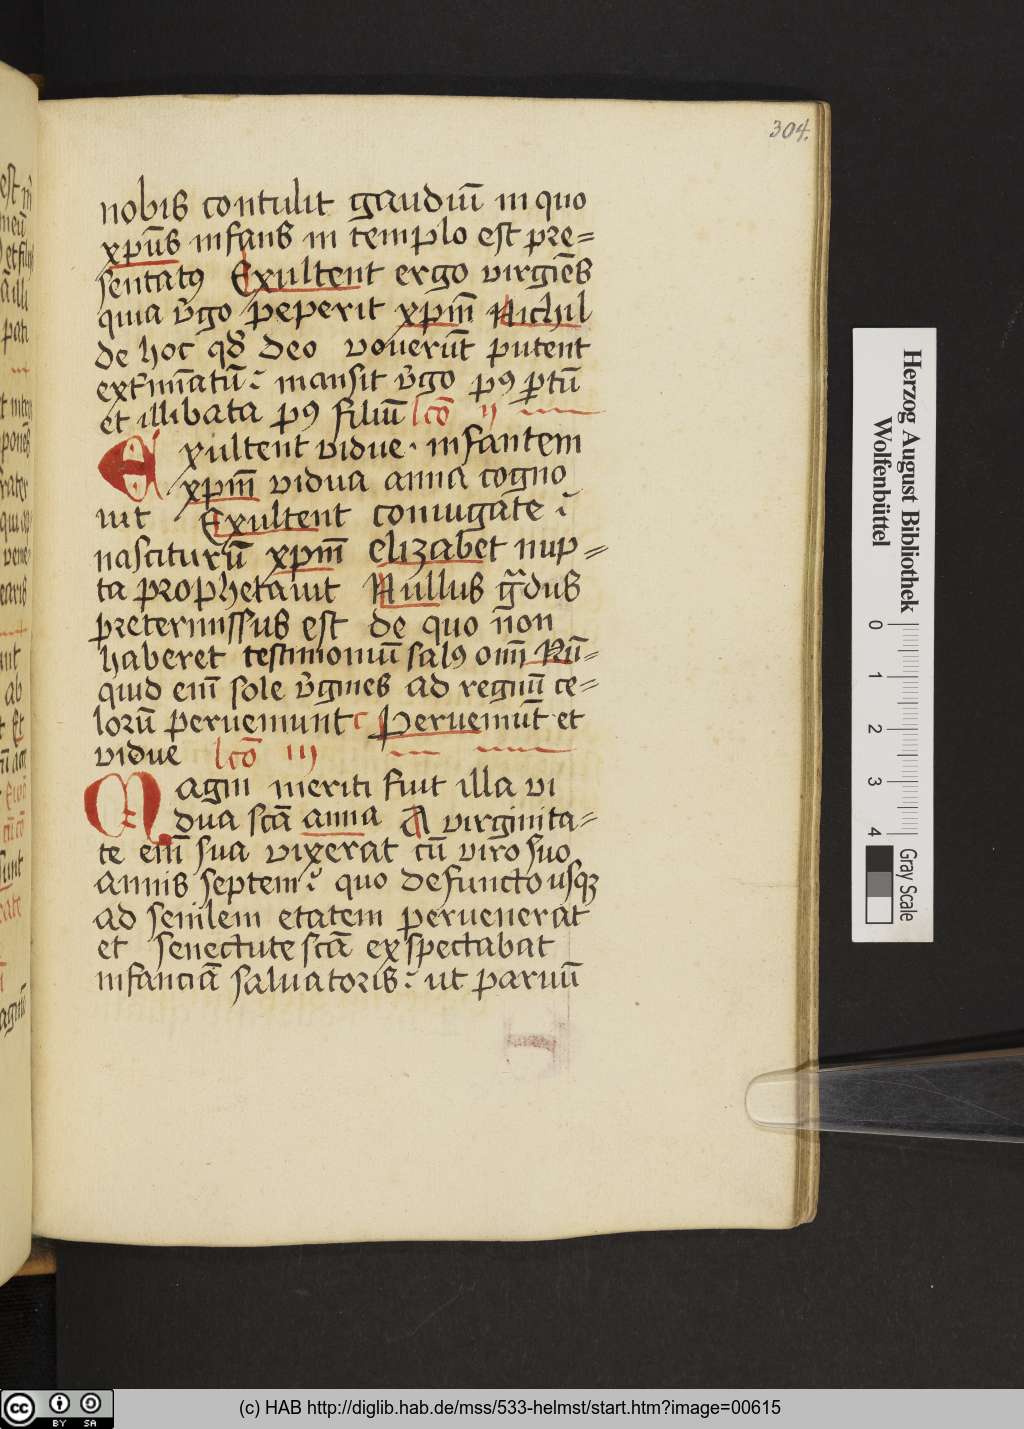 304.
nobis contulit gaudiū in quo
xp̄us infans in templo est pre=
sentatꝰ Exultent ergo virgiēs
quia v̄go peperit xpm̄ Nichil
de hoc qđ deo vouerūt putent
extmīatū: mansit v̄go pꝰ ꝑtū
et illibata pꝰ filiū lcō ij
Exultent vidue. infantem
xpm̄ vidua anna cogno
uit Exultent coniugate:
nasciturū xpm̄ elizabet nup=
ta prophetauit Nullus gᷓdus
pretermissus est de quo nōn
haberet testimoniū salꝰ om̄ Nū=
quid eni̅ sole v̄gines ad regnū ce=
lorū perueniunt Perueniūt et
vidue lcō iij
Magni meriti fuit illa vi
dua scā anna A virginita=
te eni̅ sua vixerat cū viro suo
annis septem: quo defuncto usqꝫ
ad senilem etatem peruenerat
et senectute scā exspectabat
infanciā saluatoris: ut paruū
Herzog August Bibliothek
Wolfenbüttel
0 1 2 3 4
Gray Scale
cc BY SA
(c) HAB http://diglib.hab.de/mss/533-helmst/start.htm?image=00615